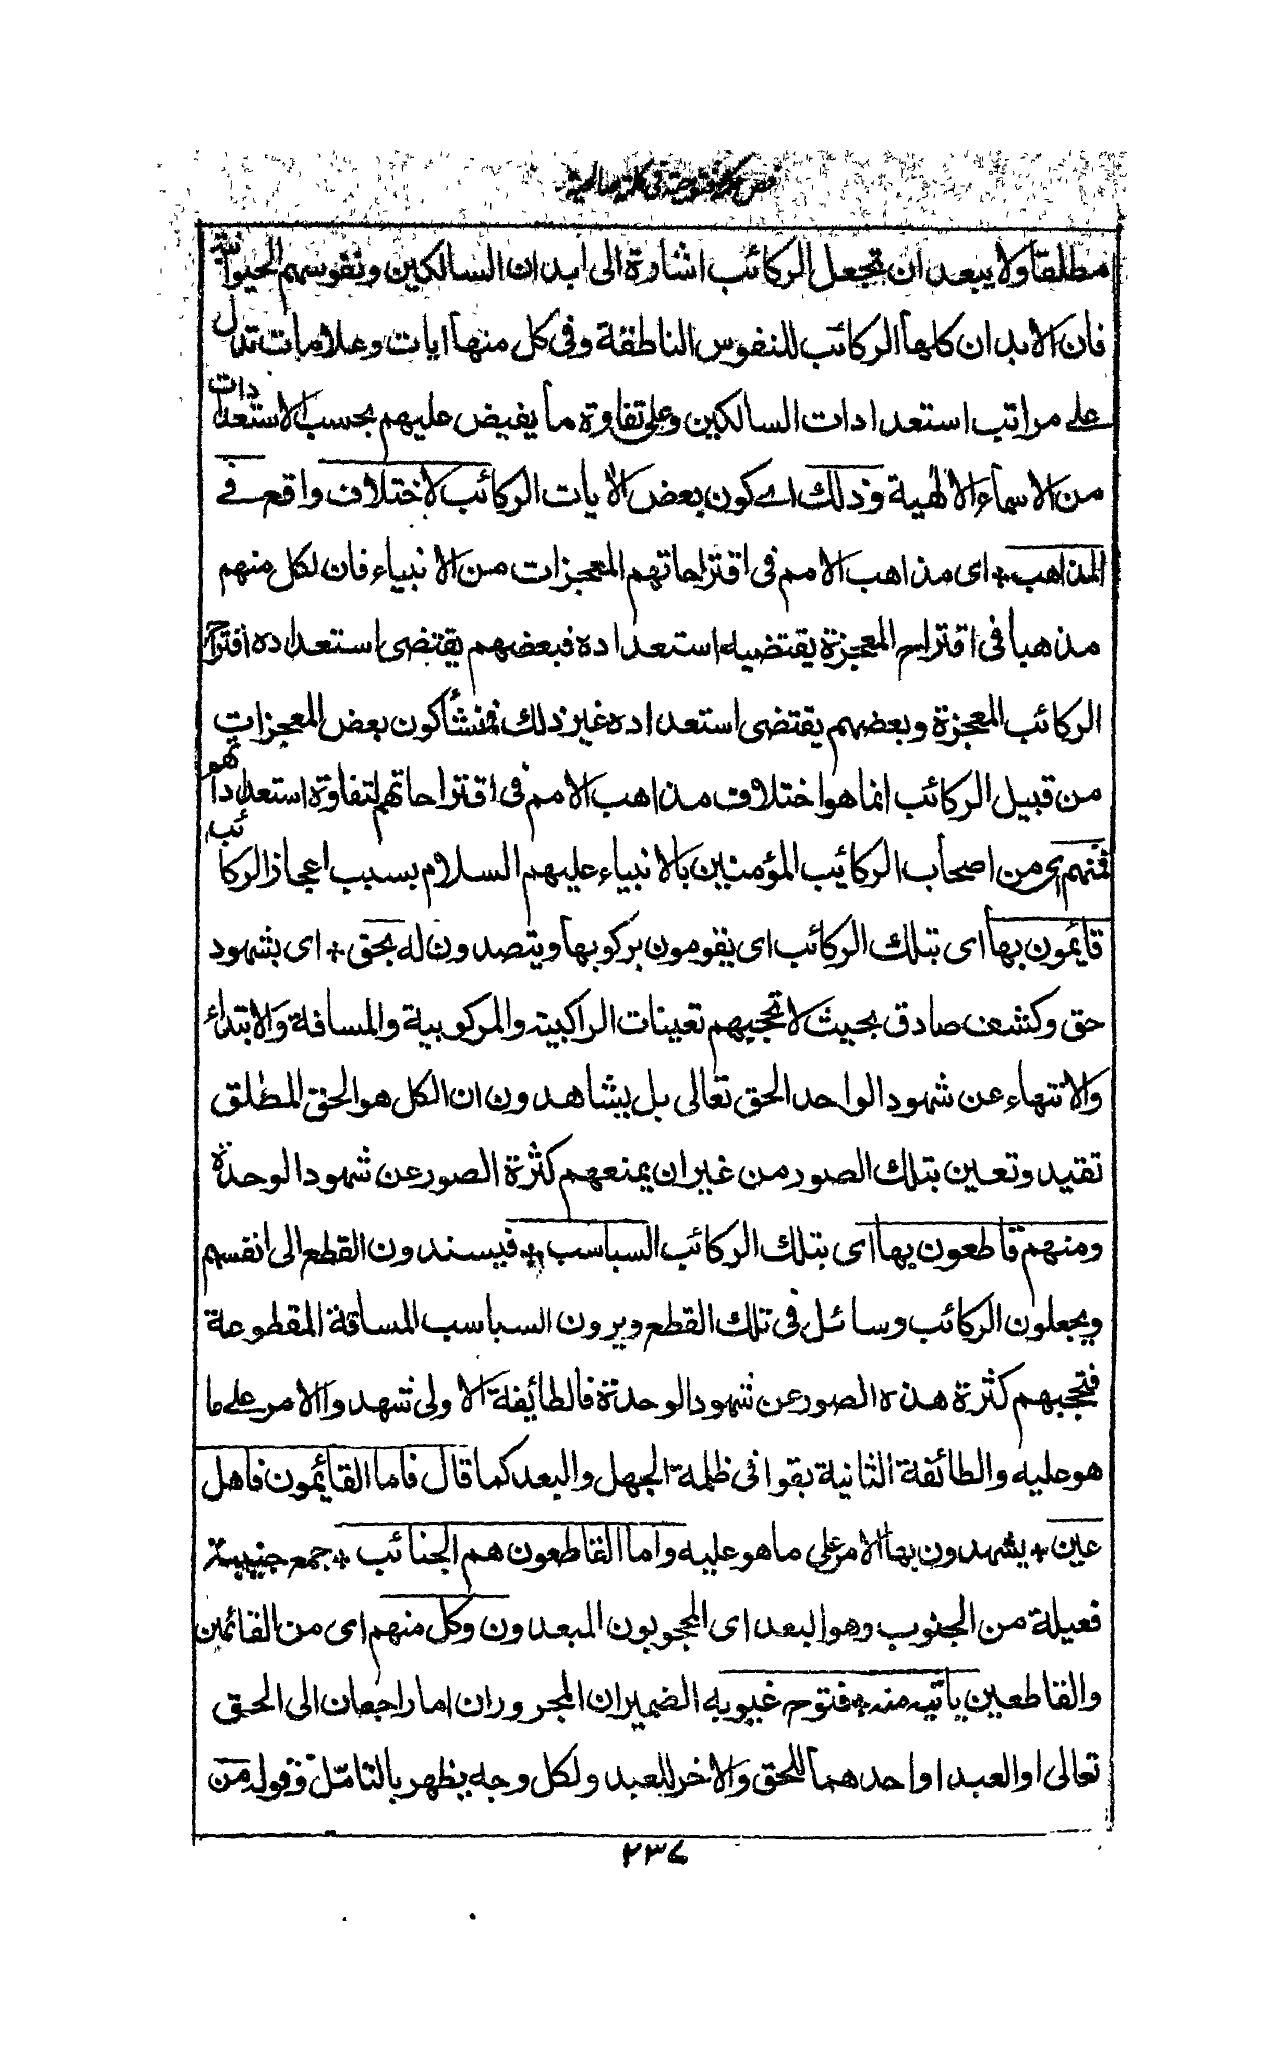 فص حكمة فتوحية في كلمة صالحية
مطلقا ولا يبعد ان تجعل الركائب اشارة الى ابدان السالكين ونفوسهم الحيوانية
فان الابدان كلها الركائب للنفوس الناطقة وفى كل منها ايات وعلامات تدل
على مراتب استعدادات السالكين وعلى تفاوة ما يفيض عليهم بحسب الاستعدادات
من الاسماء الالهية وذلك اے كون بعض الايات الركائب لاختلاف واقع فے
المذاهب * اى مذاهب الامم فى اقتراحاتهم المعجزات من الانبياء فان لكل منهم
مذهبا فى اقتراح المعجزة يقتضيه استعداده فبعضهم يقتضى استعداده اقتراح
الركائب المعجزة وبعضهم يقتضى استعداده غير ذلك فمنشأ كون بعض المعجزات
من قبيل الركائب انما هو اختلاف مذاهب الامم فى اقتراحاتهم لتفاوة استعداداتهم
فمنهم اى من اصحاب الركايب المؤمنين بالانبياء عليهم السلام بسبب اعجاز الركائب
قائمون بها اى بتلك الركائب اى يقومون بركوبها ويتصدون له بحق * اى بشهود
حق وكشف صادق بحيث لا تحجبهم تعينات الراكبية والمركوبية والمسافة والابتداء
والانتهاء عن شهود الواحد الحق تعالى بل يشاهدون ان الكل هو الحق المطلق
تقيد وتعين بتلك الصور من غير ان يمنعهم كثرة الصور عن شهود الوحدة
ومنهم قاطعون بها اى بتلك الركائب السباسب * فيسندون القطع الى انفسهم
ويجعلون الركائب وسائل فى تلك القطع ويرون السباسب المسافة المقطوعة
فتحجبهم كثرة هذه الصور عن شهود الوحدة فالطائفة الاولى شهدوا الامر على ما
هو عليه والطائفة الثانية بقوا فى ظلمة الجهل والبعد كما قال فاما القائمون فاهل
عين * يشهدون بها الامر على ما هو عليه واما القاطعون هم الجنائب * جمع جنيبة
فعيلة من الجنوب وهو البعد اى المحجوبون المبعدون وكل منهم اى من القائمين
والقاطعين ياتيه منه * فتوح غيوبه الضميران المجروران اما راجعان الى الحق
تعالى او العبد او احدهما للحق والاخر للعبد ولكل وجه يظهر بالتامل وقوله من
٢٣٧